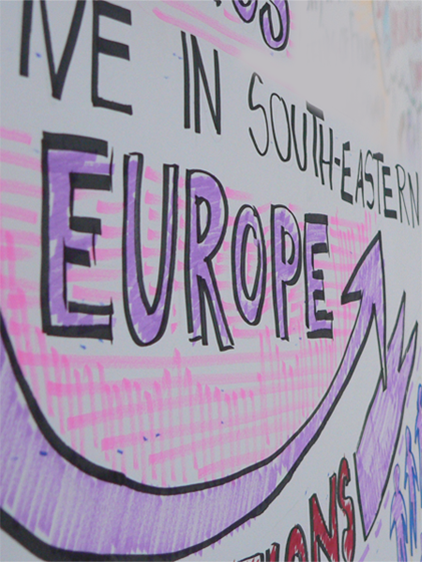 IVE IN SOUTH-EASTERN
EUROPE